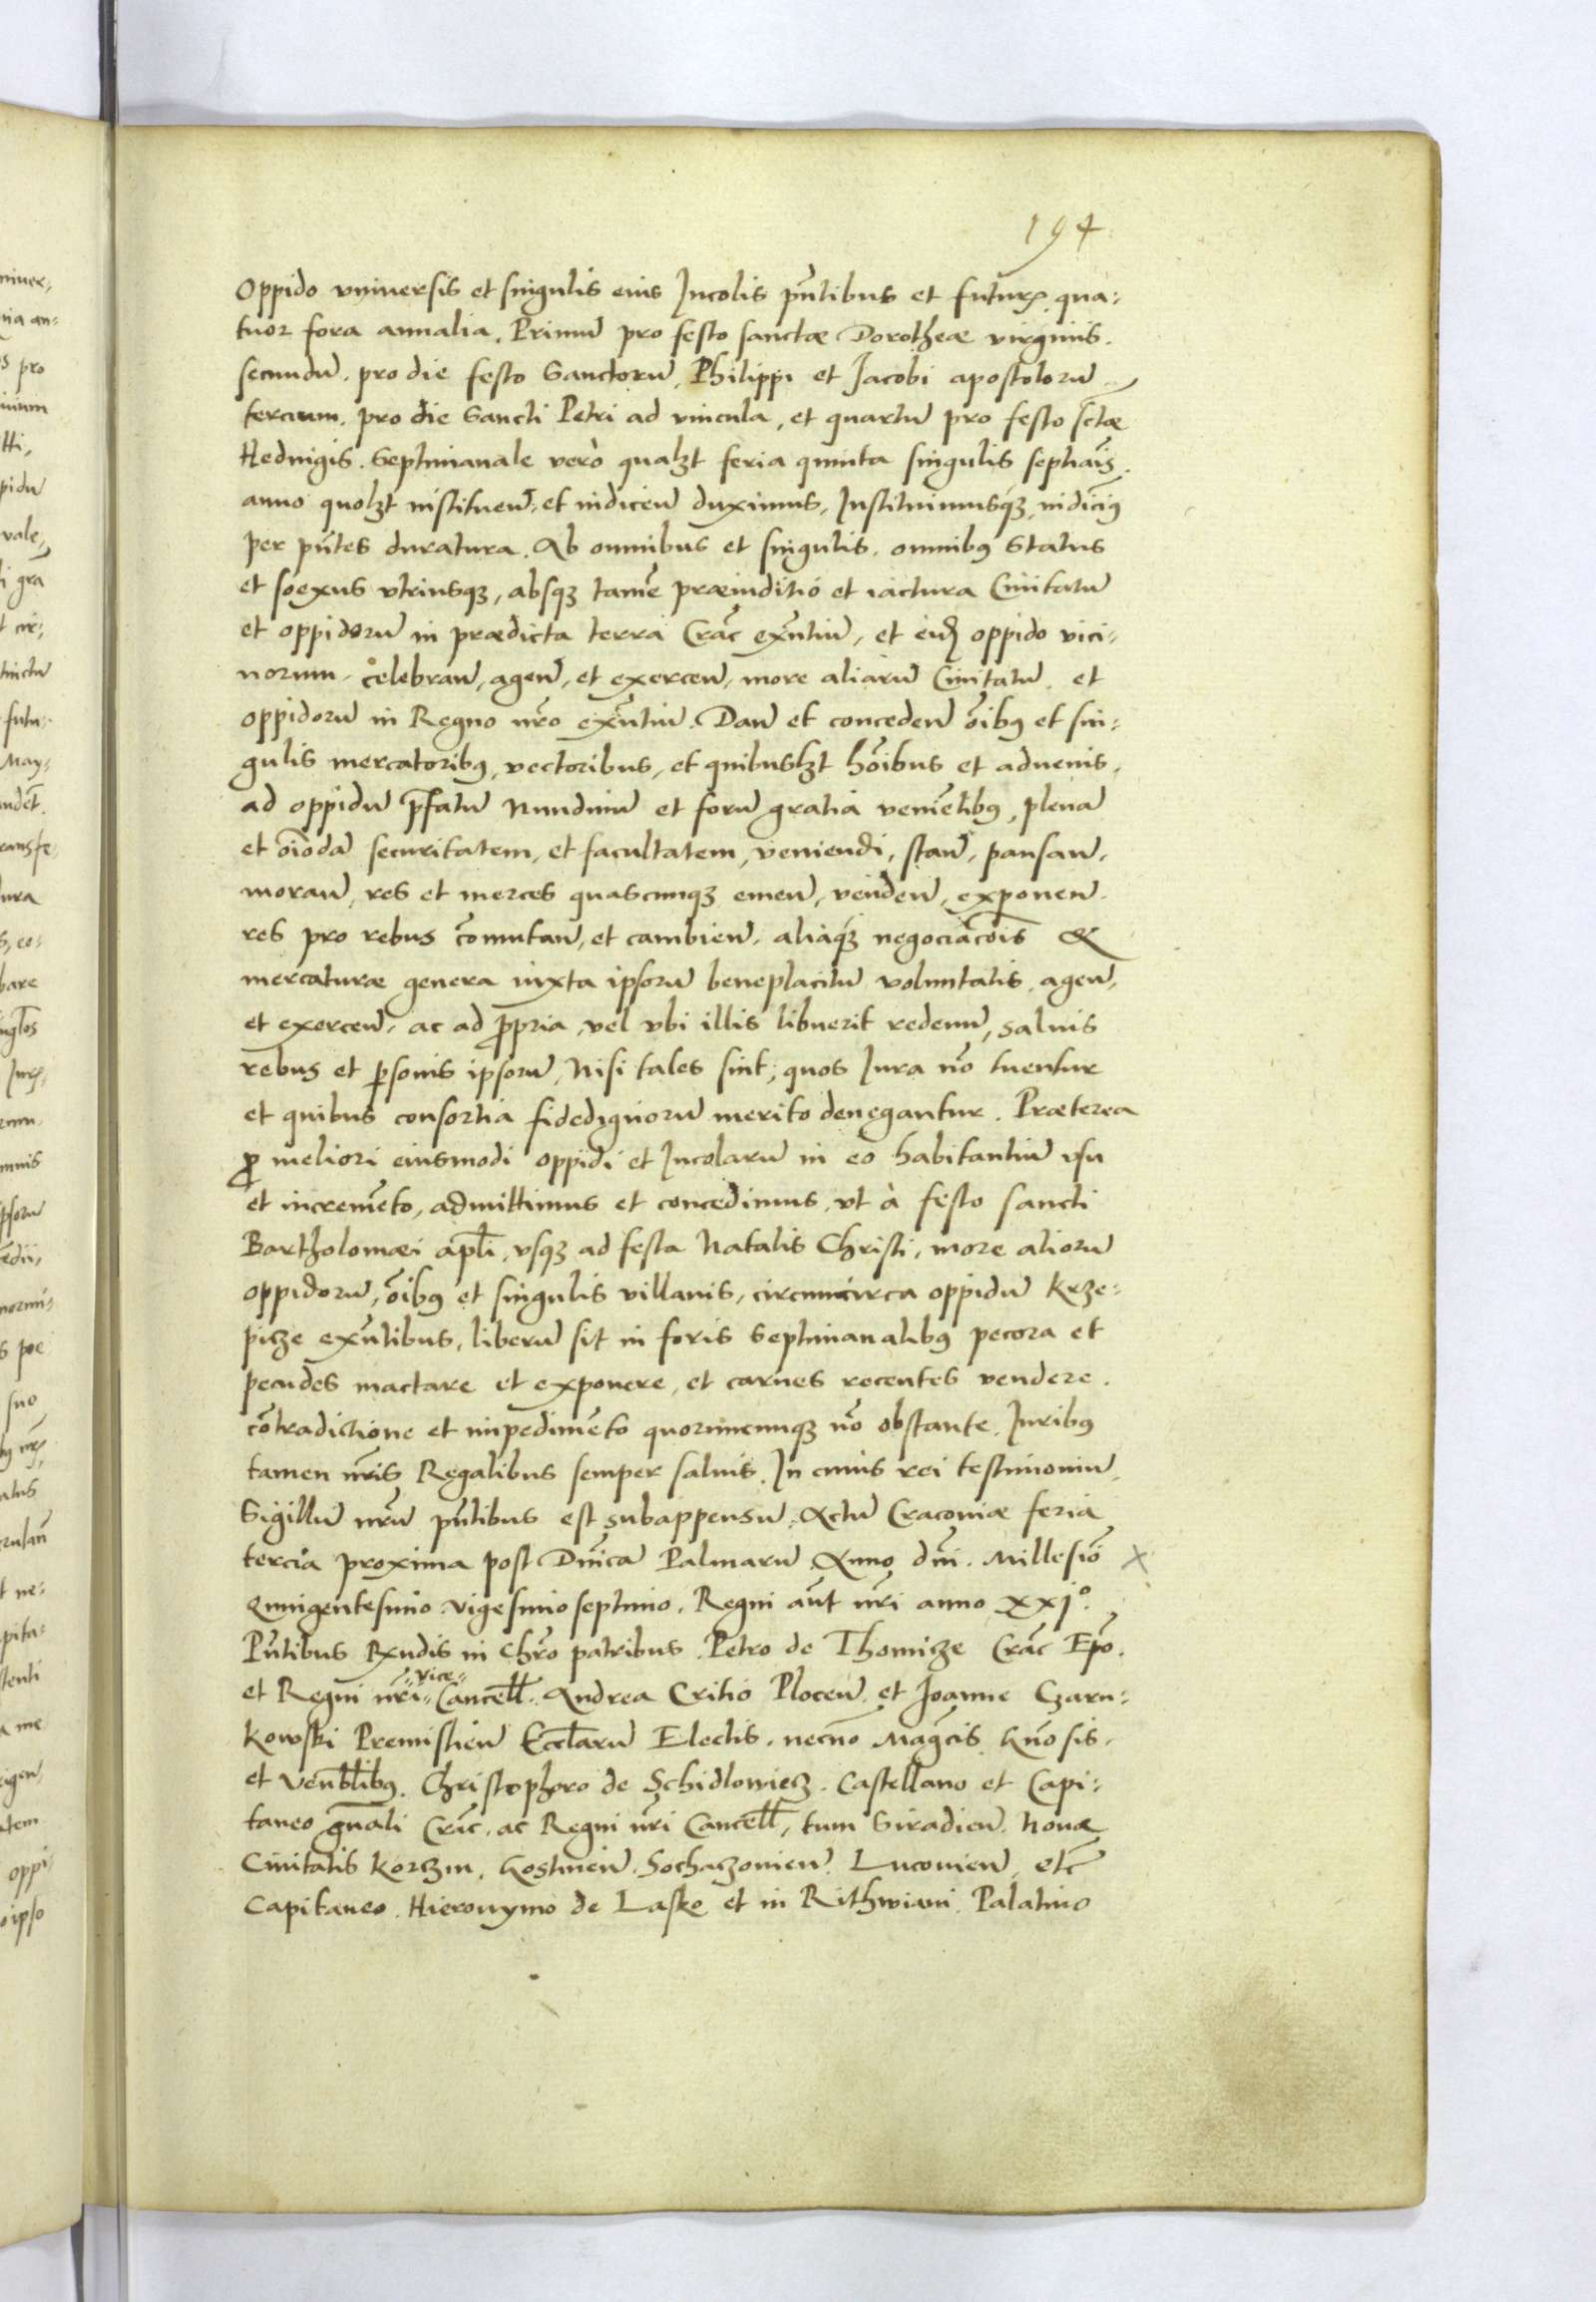 194
Oppido vniversis et singulis eius Incolis pñtibus et futurꝝ qua:
tuor fora annalia. Primũ pro festo sanctæ Dorotheæ virginis.
secundũ. pro die festo Sanctorũ Philippi et Jacobi apostolorũ
tercium. pro die Sancti Petri ad vincula, et quartũ pro festo sctæ
Hedwigis. Septimanale verò qualꝫt feria quinta singulis septiãis.
anno quolꝫt instituen̄. et indicen̄ duximus, Instituimusqꝫ, indiciꝰ
per pñtes duratura. Ab omnibus et singulis. omnibꝰ Status
et soexus vtriusqꝫ, absqꝫ tamẽ præiuditio et iactura Ciuitatũ
et oppidorũ in prædicta terra Crãc exñtiũ, et eidꝫ oppido vici:
norum. celebran̄, agen̄, et exercen̄, more aliarũ Ciuitatũ. et
oppidorũ in Regno nr̃o exñtiũ. Dan̄ et conceden̄ õibꝰ et sin:
gulis mercatoribꝰ, vectoribus, et quibuslꝫt hõibus et aduenis.
ad oppidũ p̃fatũ Nundinũ et forũ gratia veniẽtibꝰ, plenã
et oĩodã securitatem, et facultatem, veniendi, stan̄, pausan̄,
moran̄, res et merces quascunqꝫ emen̄, venden̄, exponen̄.
res pro rebus cõmutan̄, et cambien̄. aliaqꝫ negociãcõis &
mercaturæ genera iuxta ipsorũ beneplacitũ voluntatis. agen̄,
et exercen̄. ac ad ꝓpria, vel vbi illis libuerit redeun̄, saluis
rebus et ꝑsonis ipsorũ, Nisi tales sint, quos Iura nõ tuentur
et quibus consortia fidedignorũ merito denegantur. Præterea
ꝓ meliori eiusmodi oppidi et Incolarũ in eo habitantiũ vsu
et incremẽto, admittimus et concedimus, vt à festo sancti
Bartholomæi apl̃i, vsqꝫ ad festa Natalis Christi, more aliorũ
oppidorũ, õibꝰ et singulis villanis, circumcirca oppidũ Krze:
picze exñtibus, liberũ sit in foris Septimanalibꝰ pecora et
pecudes mactare et exponere, et carnes recentes vendere.
cõtradictione et impedimẽto quorumcunqꝫ nõ obstante. Iuribꝰ
tamen nr̃is Regalibus semper saluis. In cuius rei testimoniũ
Sigillũ nr̃ũ pñtibus est subappensũ. Actũ Cracouiæ feria
tercia proxima post Dñicã Palmarũ Anno dñi. Millesiõ X
Quingentesimo. vigesimo septimo. Regni aũt nr̃i anno XXJº.
Pñtibus Rx̃ndis in Chr̃o patribus. Petro de Thomicze Crãc Epõ.
et Regni nr̃i Vice= Cancell̃. Andrea Critio Plocen̄. et Joanne Czarn:
kowski Premislien̄ Eccl̃arũ Electis. necnõ Mag̃cis Gñosis.
et Venbl̃ibꝰ. Christophoro de Schidlowiecz. Castellano et Capi:
taneo gñali Crãc. ac Regni nr̃i Cancell̃, tum Siradien̄. Nouæ
Ciuitatis Korczin. Gostinen̄. Sochaczouien̄. Lucouien̄ etc̃
Capitaneo. Hieronymo de Lasko et in Rithwiani. Palatino